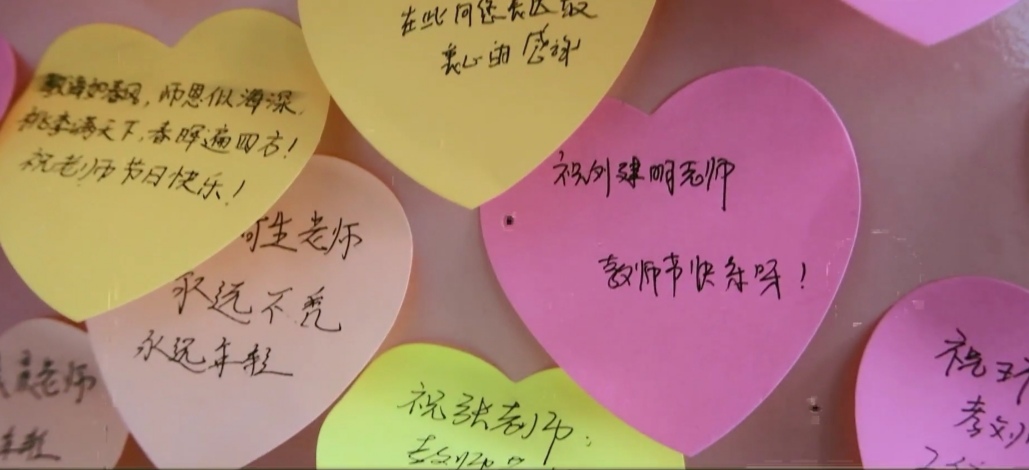 在此向您表达最
衷心的感谢
教诲如春风，师恩似海深，
桃李满天下，春晖遍四方！
祝老师节日快乐！
生老师
永远不秃
永远年轻
祝刘建明老师
教师节快乐呀！
祝张老师：
教师
老师
年轻
祝王
教师